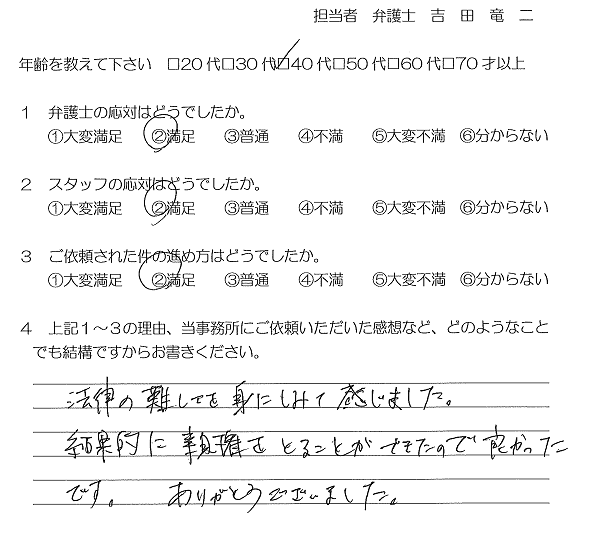 担当者　弁護士　吉　田　竜　二
年齢を教えて下さい　□20代□30代☑40代□50代□60代□70才以上
１　弁護士の応対はどうでしたか。
①大変満足　②満足　③普通　④不満　⑤大変不満　⑥分からない
２　スタッフの応対はどうでしたか。
①大変満足　②満足　③普通　④不満　⑤大変不満　⑥分からない
３　ご依頼された件の進め方はどうでしたか。
①大変満足　②満足　③普通　④不満　⑤大変不満　⑥分からない
４　上記１～３の理由、当事務所にご依頼いただいた感想など、どのようなこと
でも結構ですからお書きください。
法律の難しさを身にしみて感じました。
結果的に親権をとることができたので良かった
です。　ありがとうございました。